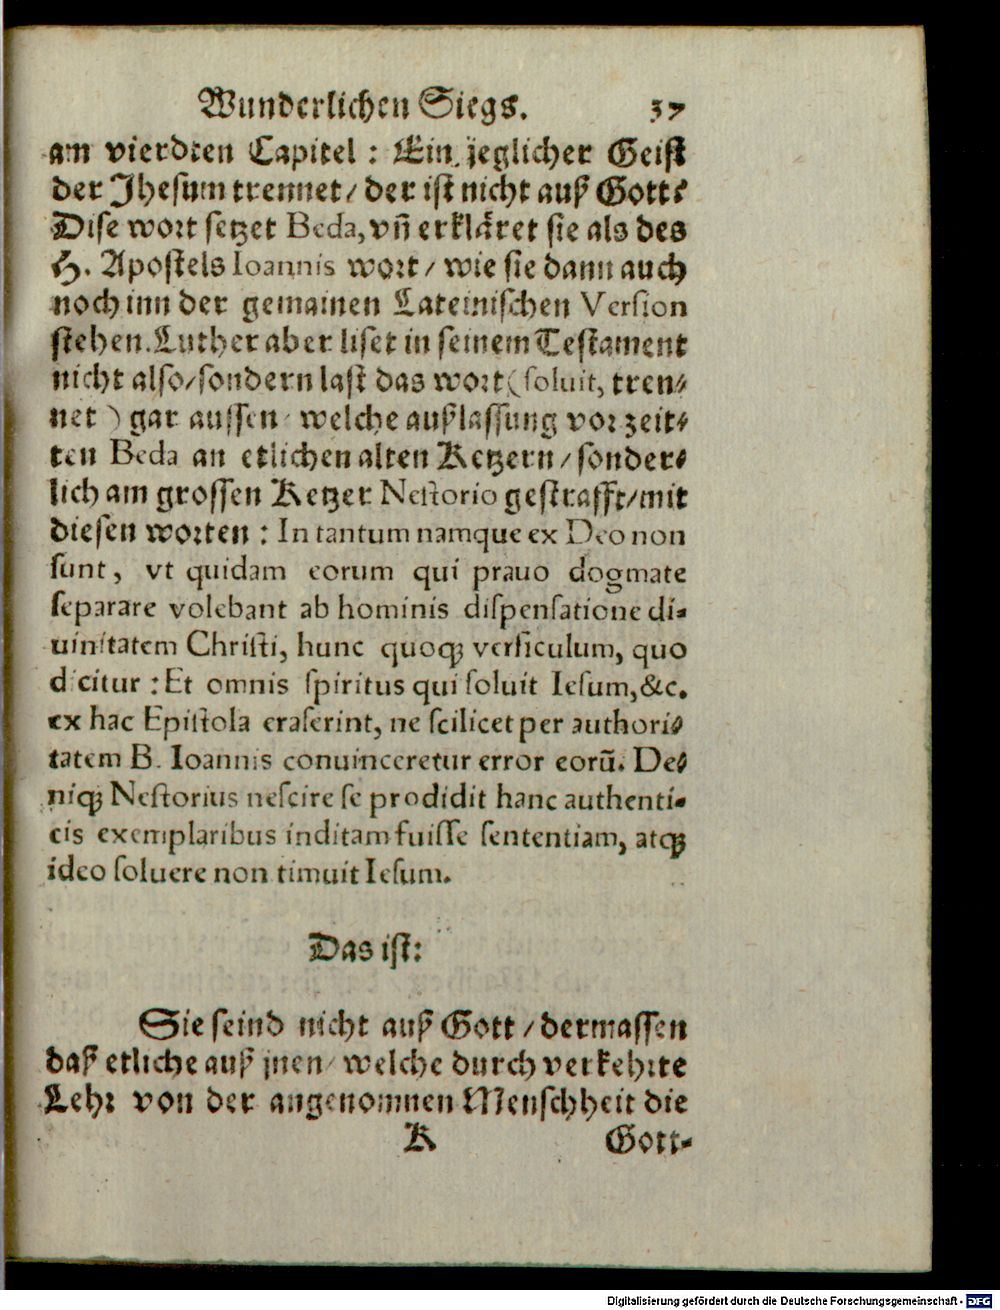 Wunderlichen Siegs. 37
am vierdten Capitel : Ein jeglicher Geist
der Jhesum trennet/ der ist nicht auß Gott:
Dise wort setzet Beda, vn̄ erkläret sie als des
H. Apostels Ioannis wort/ wie sie dann auch
noch inn der gemainen Lateinischen Version
stehen. Luther aber liset in seinem Testament
nicht also/ sondern last das wort (soluit, tren⸗
net ) gar aussen/ welche außlassung vor zeit⸗
ten Beda an etlichen alten Ketzern/ sonder⸗
lich am grossen Ketzer Nestorio gestrafft/ mit
diesen worten : In tantum namque ex Deo non
sunt, vt quidam eorum qui prauo dogmate
separare volebant ab hominis dispensatione di-
uinitatem Christi, hunc quoq; versiculum, quo
dicitur : Et omnis spiritus qui soluit Iesum, &c.
ex hac Epistola eraserint, ne scilicet per authori⸗
tatem B. Ioannis conuinceretur error eorū. De⸗
niq; Nestorius nescire se prodidit hanc authenti-
cis exemplaribus inditam fuisse sententiam, atq;
ideo soluere non timuit Iesum.
Das ist:
Sie seind nicht auß Gott/ dermassen
daß etliche auß jnen/ welche durch verkehrte
Lehr von der angenomnen Menschheit die
K Gott-
Digitalisierung gefördert durch die Deutsche Forschungsgemeinschaft - DFG